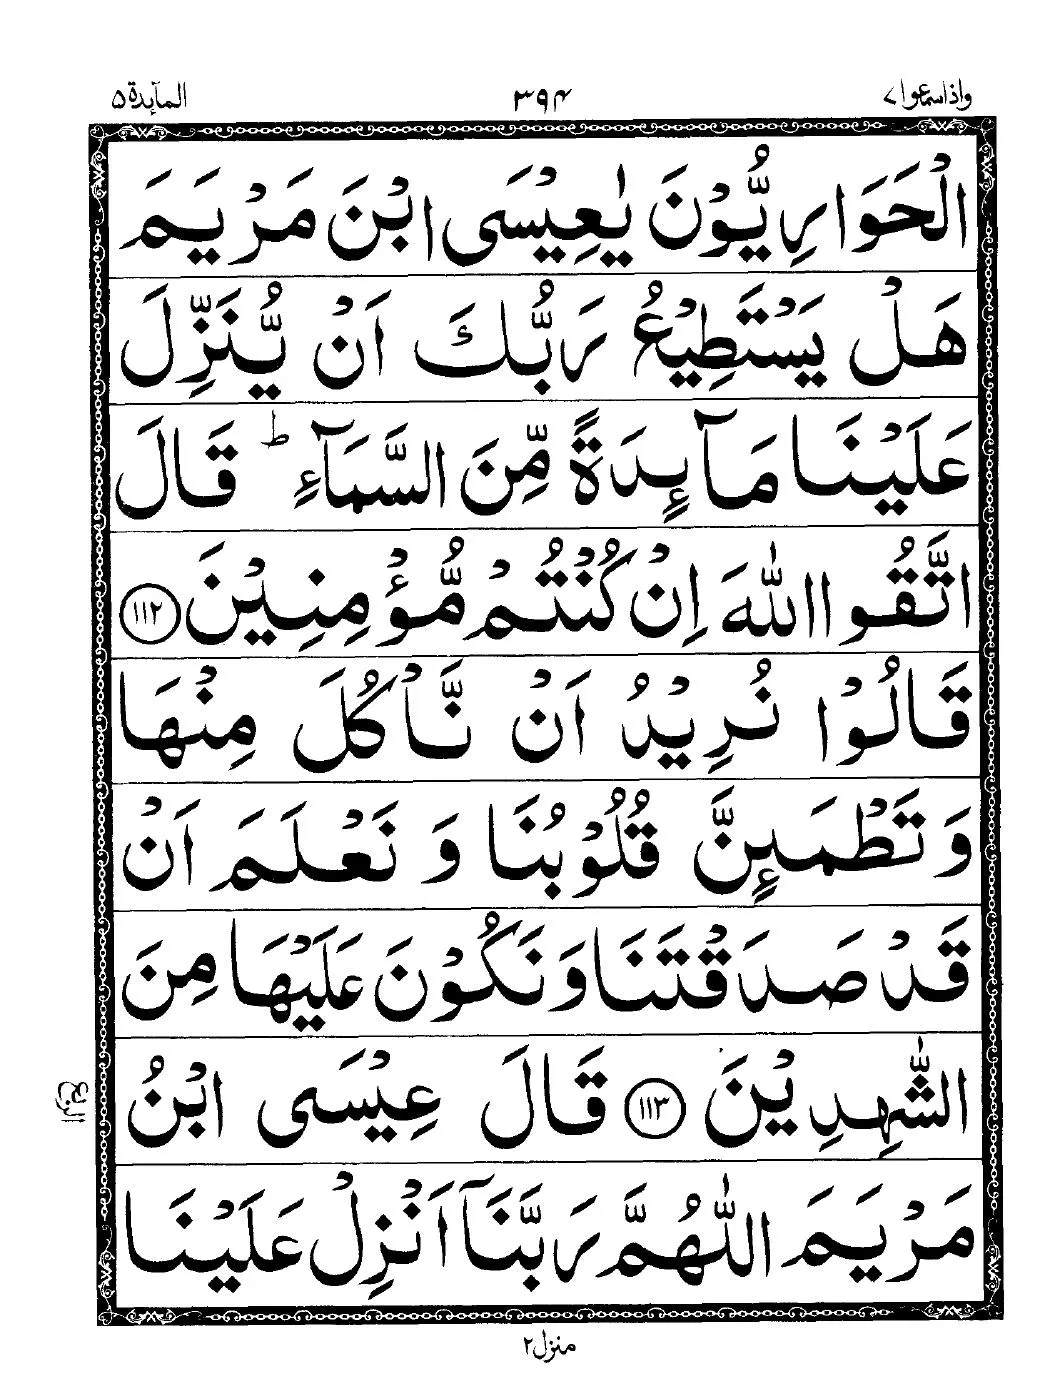 واذاسمعوا۷
۳۹۴
المآىِٕدة۵
الْحَوَارِيُّوْنَ يٰعِيْسَى ابْنَ مَرْيَمَ
هَلْ يَسْتَطِيْعُ رَبُّكَ اَنْ يُّنَزِّلَ
عَلَيْنَا مَآىِٕدَةً مِّنَ السَّمَآءِ ؕ قَالَ
اتَّقُوا اللّٰهَ اِنْ كُنْتُمْ مُّؤْمِنِيْنَ ۱۱۲
قَالُوْا نُرِيْدُ اَنْ نَّاْكُلَ مِنْهَا
وَتَطْمَىِٕنَّ قُلُوْبُنَا وَنَعْلَمَ اَنْ
قَدْ صَدَقْتَنَا وَنَكُوْنَ عَلَيْهَا مِنَ
الشّٰهِدِيْنَ ۱۱۳ قَالَ عِيْسَى ابْنُ
مَرْيَمَ اللّٰهُمَّ رَبَّنَآ اَنْزِلْ عَلَيْنَا
الربع
منزل۲